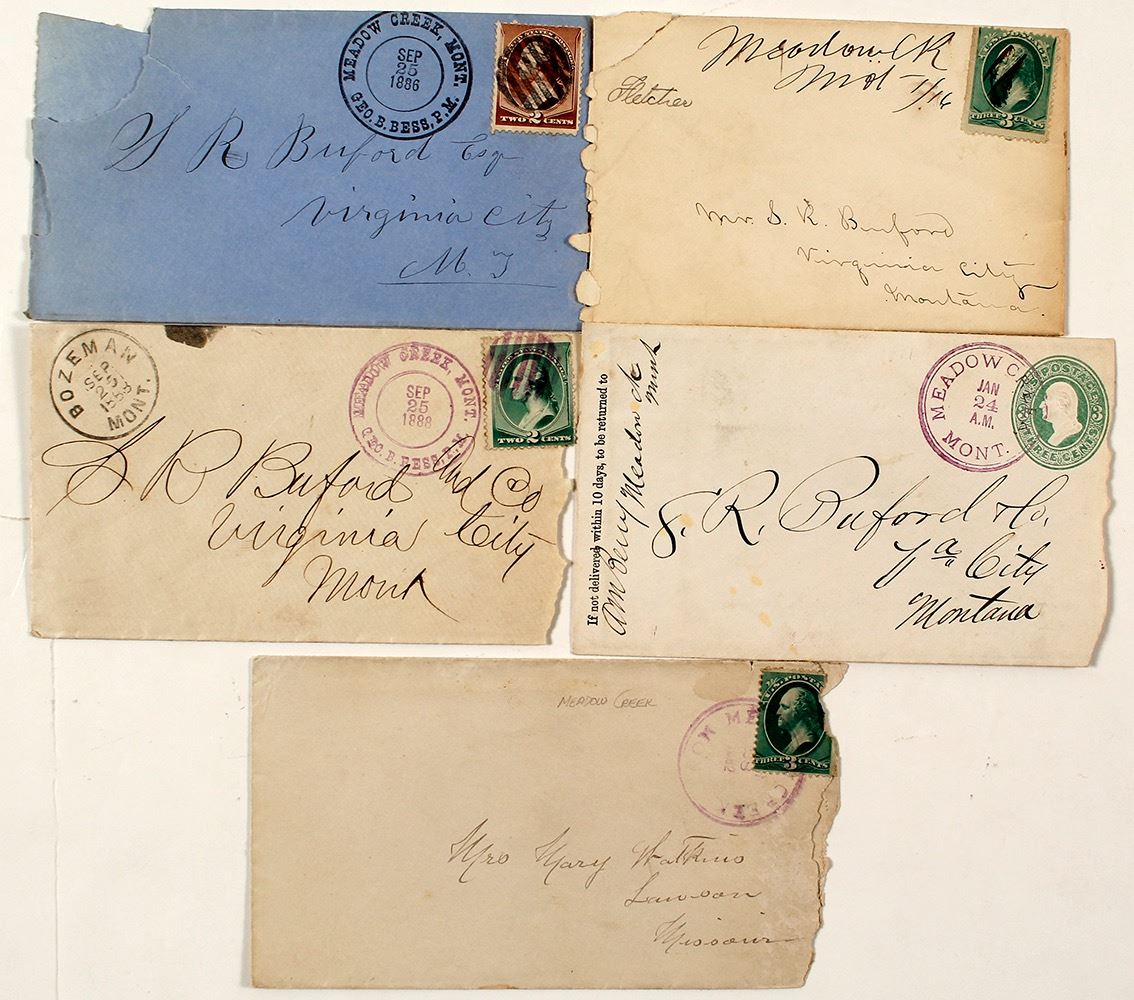 MEADOW CREEK, MONT.
SEP
25
1886
GEO. E. BESS, P.M.
UNITED STATES POSTAGE
TWO 2 CENTS
S R Buford Esq
Virginia City
M. T
Meadow CK
Fletcher
U.S. POSTAGE
THREE 3 CENTS
Mr. S. R. Buford
Virginia City
Montana.
BOZEMAN
SEP
25
MONT.
MEADOW CREEK, MONT.
SEP
25
1888
GEO. E. BESS, P.M.
TWO 2 CENTS
S. R Buford and Co
Virginia City
Mont
If not delivered within 10 days, to be returned to
Meadow ck
Mont
MEADOW CR
JAN
24
A.M.
MONT.
U.S. POSTAGE
THREE CENTS
S. R. Buford & Co.
Va City
Montana
MEADOW CREEK
U.S. POSTA
THREE 3 CENTS
Mrs Mary Watkins
Lawson
Missouri